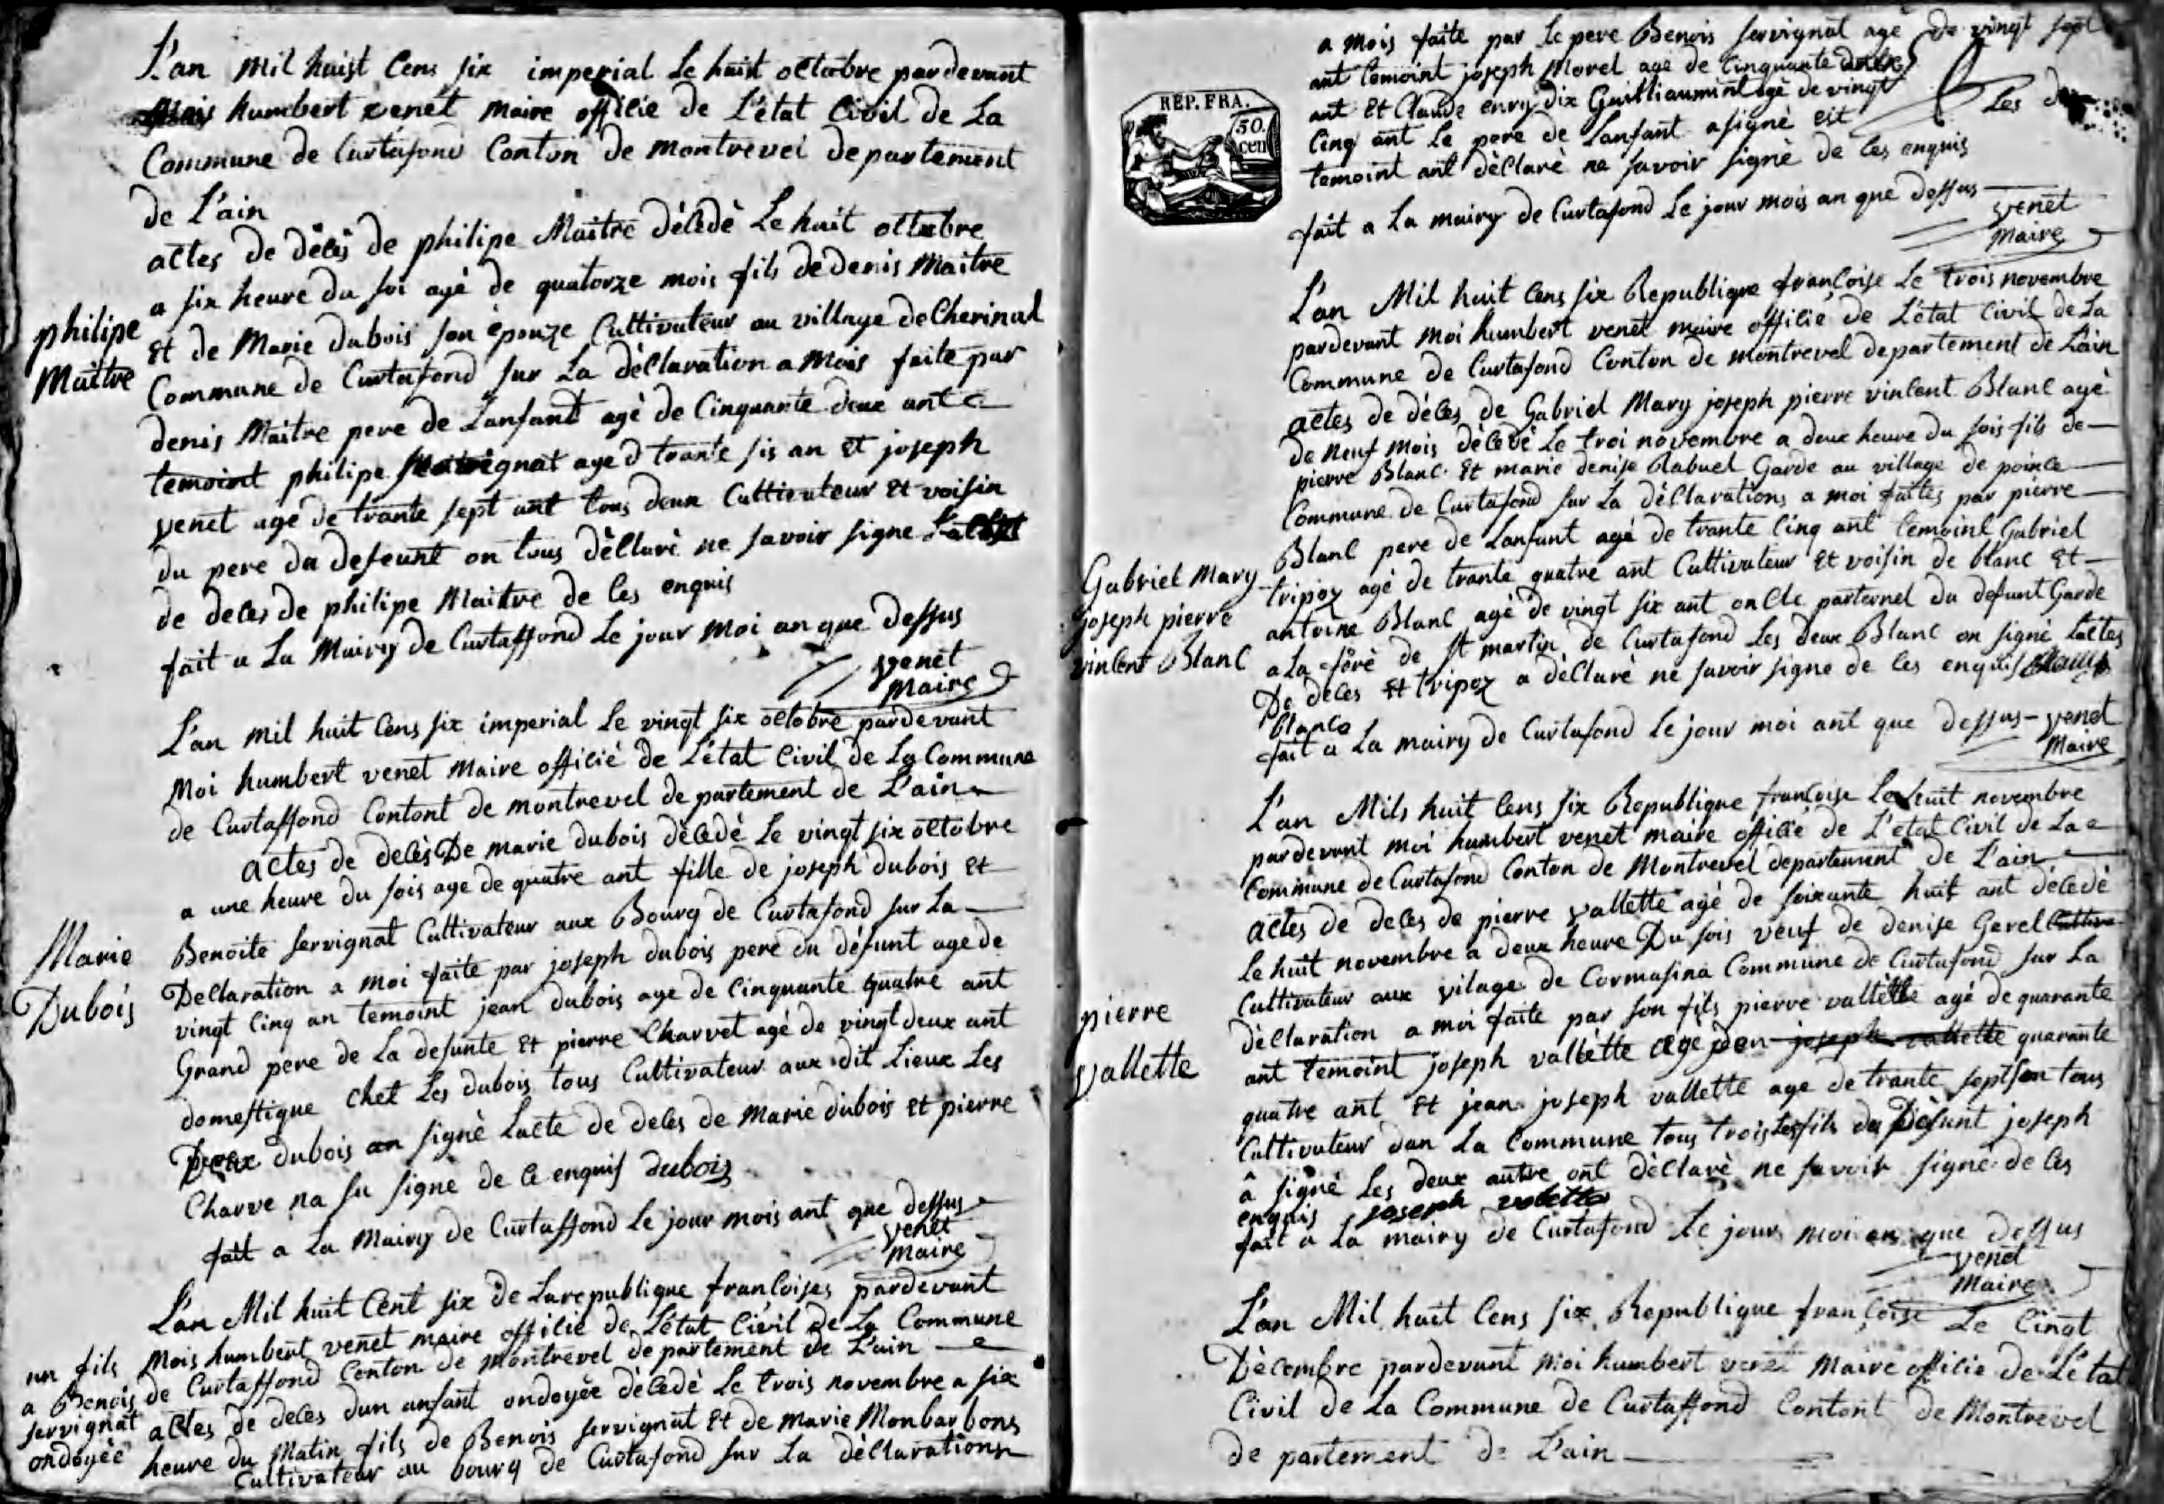 L'an Mil huist Cens six imperial Le huist octobre pardevant
Mois humbert venet maire officie de L'état Civil de La
Commune de Curtafond Conton de montrevei departement
de L'ain
actes de décès de philipe Maitre décédé Le huit octobre
a six heure du soi agé de quatorze mois fils de denis Maitre
et de Marie dubois son épouze Cultivateur au village de Cherinal
Commune de Curtafond sur La déClaration a Mois faite par
denis Maitre pere de Lanfant agé de Cinquante deux ant
temoint philipe agnat aye d trante sis an Et joseph
venet age de trante sept ant tous deux Cultivateur Et voisin
du pere du defeunt on tous déClaré ne savoir signe
de deces de philipe Maitre de ces enquis
fait a La Mairy de Curtaffond Le jour Moi an que dessus
venet
Maire
philipe
Maitre
L'an mil huit Cens six imperial Le vingt six octobre pardevant
Moi humbert venet Maire officié de L'état Civil de La Commune
de Curtaffond Contont de montrevel departement de L'ain
actes de decès De marie dubois décédé Le vingt six octobre
a une heure du sois age de quatre ant fille de joseph dubois Et
Benoite servignat Cultivateur aux Bourg de Curtafond sur La
Declaration a Moi faite par joseph dubois pere du défunt age de
vingt Cinq an temoint jean dubois age de Cinquante quatre ant
Grand pere de La defunte Et pierre Charvet agé de vingt deux ant
domestique chet Les dubois tous Cultivateur aux dit Lieux Les
Deux dubois an signé Lacte de deces de Marie dubois Et pierre
Charve na su signe de ce enquis dubois
fait a La Mairy de Curtaffond Le jour mois ant que dessus
venet
Maire
Marie
Dubois
L'an Mil huit Cent six de La republique françoises pardevant
Mois humbert venet maire officié de L'état Civil de La Commune
de Curtaffond Conton de Montrevel departement de L'ain
actes de deces dun anfant ondoyée décédé Le trois novembre a six
heure du Matin fils de Benois servignat Et de Marie Monbarbons
Cultivateur au bourg de Curtafond sur La déClarations
un fils
a Benois
servignat
ondoyée
a mois faite par Le pere Benois servignat age de vingt sept
ant temoint joseph Morel age de Cinquante
ant Et Claude enry dix Guilliaumint agé de vingt
Cinq ant Le pere de Lanfant asigné est Les
temoint ant déClaré ne savoir signé de ces enquis
fait a La mairy de Curtafond Le jour mois an que dessus
venet
Maire
REP. FRA.
50.
cen
L'an Mil huit Cens six Republique françoise Le trois novembre
pardevant Moi humbert venet maire officié de L'état Civil de La
Commune de Curtafond Conton de montrevel departement de L'ain
actes de déces de Gabriel Mary joseph pierre vincent Blanc agé
de neuf Mois décédé Le troi novembre a deux heure du sois fils de
pierre Blanc Et marie denise Rabuel Garde au village de poince
Commune de Curtafond sur La déClarations a moi faites par pierre
Blanc pere de Lanfant agé de trante Cinq ant temoint Gabriel
tripoz agé de trante quatre ant Cultivateur Et voisin de blanc Et
antoine Blanc agé de vingt six ant oncle parternel du defunt Garde
a La foré de st martin de Curtafond Les deux Blanc on signé Lactes
De déces Et tripoz a déClaré ne savoir signe de ces enquis
blanc
fait a La mairy de Curtafond Le jour moi ant que dessus - venet
Maire
Gabriel Mary
joseph pierre
vincent Blanc
L'an Mils huit Cens six Republique françoise Le huit novembre
pardevant moi humbert venet maire officié de L'etat Civil de La
Commune de Curtafond Conton de Montrevel departement de L'ain
actes de deces de pierre vallette agé de soixante huit ant décédé
Le huit novembre a deux heure Du sois veuf de denise Gerel
Cultivateur aux vilage de Cormasina Commune de Curtafond sur La
déClaration a moi faite par son fils pierre vallette agé de quarante
ant temoint joseph vallette age den joseph vallette quarante
quatre ant Et jean joseph vallette age de trante sept tous
Cultivateur dan La Commune tous trois Les fils du Défunt joseph
a signé Les deux autre ont déClaré ne savoir signé de ces
enquis joseph valette
fait a La mairy de Curtafond Le jour moi an que dessus
venet
Maire
pierre
vallette
L'an Mil huit Cens six Republique françoise Le Cinqt
Décembre pardevant Moi humbert venet Maire officie de L'état
Civil de La Commune de Curtaffond Contont de Montrevel
de partement de L'ain